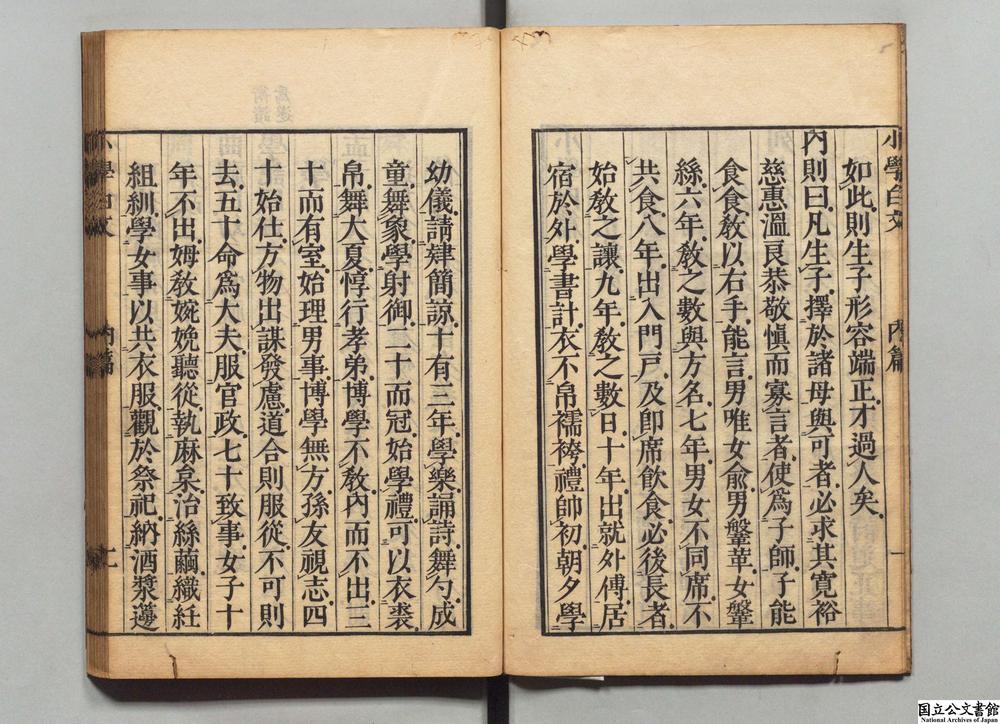 小學白文 內篇 一
如此則生子形容端正才過人矣
內則曰凡生子擇於諸母與可者必求其寬裕
慈惠溫良恭敬愼而寡言者使爲子師子能
食食敎以右手能言男唯女兪男鞶革女鞶
絲六年敎之數與方名七年男女不同席不
共食八年出入門戸及卽席飮食必後長者
始敎之讓九年敎之數日十年出就外傅居
宿於外學書計衣不帛襦袴禮帥初朝夕學
幼儀請肄簡諒十有三年學樂誦詩舞勺成
童舞象學射御二十而冠始學禮可以衣裘
帛舞大夏惇行孝弟博學不敎內而不出三
十而有室始理男事博學無方孫友視志四
十始仕方物出謀發慮道合則服從不可則
去五十命爲大夫服官政七十致事女子十
年不出姆敎婉娩聽從執麻枲治絲繭織紝
組紃學女事以共衣服觀於祭祀納酒漿籩
小學白文 內篇 七
国立公文書館
National Archives of Japan